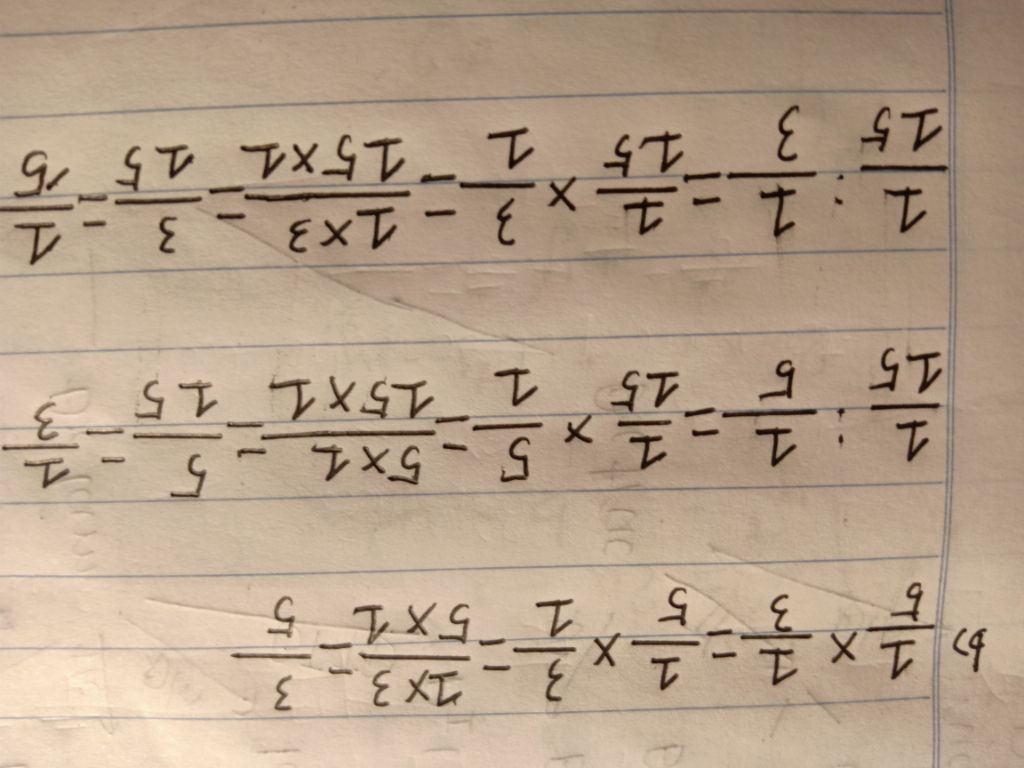 b) 1/5 × 1/3 = 1/5 × 3/1 = 1×3/5×1 = 3/5
1/15 : 1/5 = 1/15 × 5/1 = 5×1/15×1 = 5/15 = 1/3
1/15 : 1/3 = 1/15 × 3/1 = 1×3/15×1 = 3/15 = 1/5